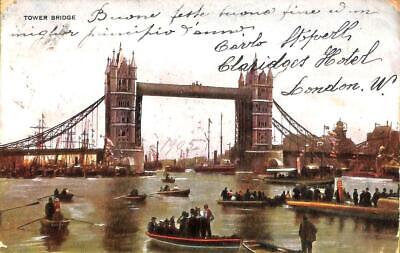 TOWER BRIDGE
Buone feste buona fine ed un
miglior principio d'anno
Carlo
Claridges Hotel
London. W.